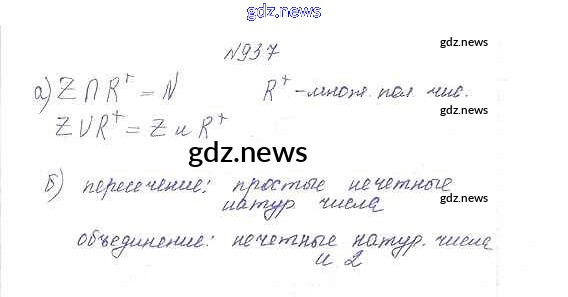 gdz.news
№937
gdz.news
а) Z ∩ R⁺ = N   R⁺ - множ. пол. чис.
gdz.news
Z U R⁺ = Z и R⁺
gdz.news
б) пересечение: простые нечетные
натур числа
gdz.news
объединение: нечетные натур. числа
и 2
gdz.news